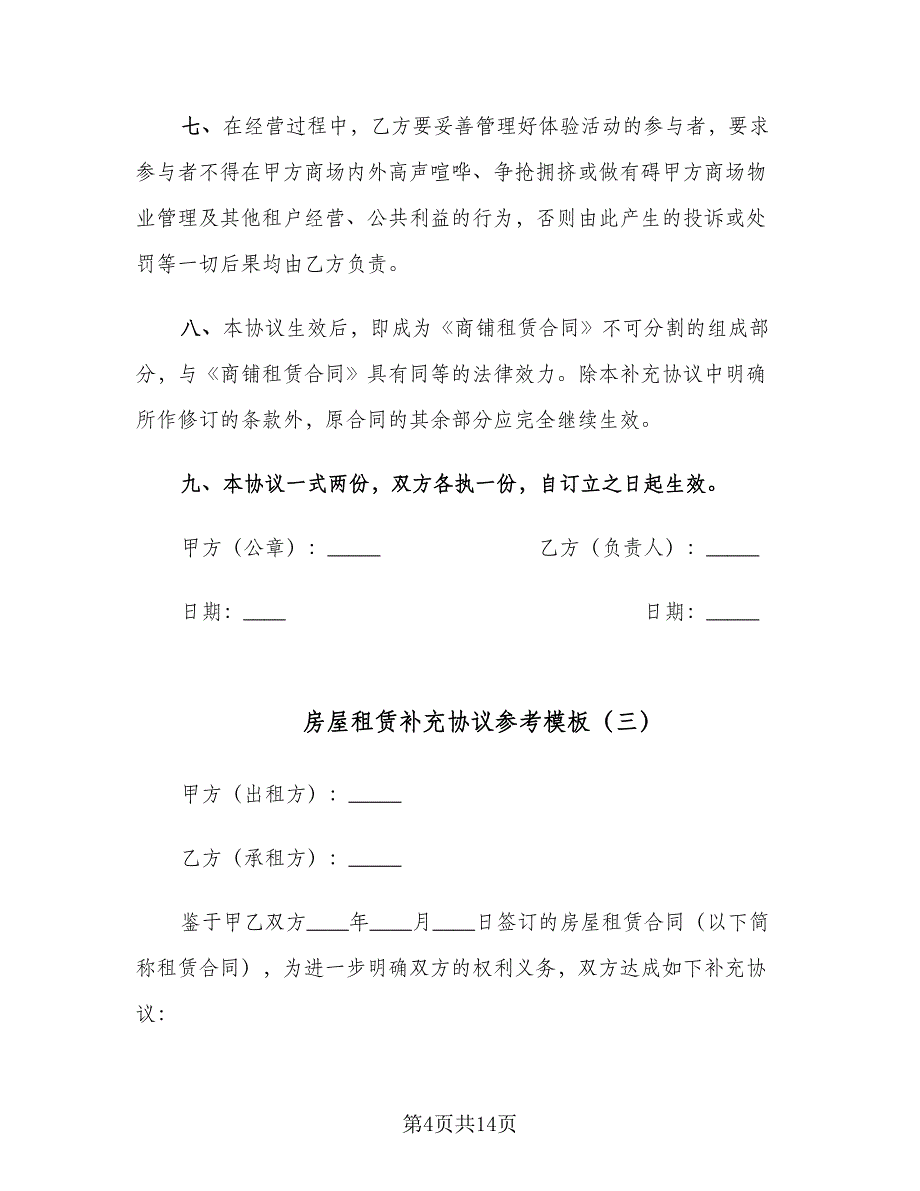 七、在经营过程中，乙方要妥善管理好体验活动的参与者，要求
参与者不得在甲方商场内外高声喧哗、争抢拥挤或做有碍甲方商场物
业管理及其他租户经营、公共利益的行为，否则由此产生的投诉或处
罚等一切后果均由乙方负责。
八、本协议生效后，即成为《商铺租赁合同》不可分割的组成部
分，与《商铺租赁合同》具有同等的法律效力。除本补充协议中明确
所作修订的条款外，原合同的其余部分应完全继续生效。
九、本协议一式两份，双方各执一份，自订立之日起生效。
甲方（公章）：_____ 乙方（负责人）：_____
日期：____ 日期：_____
房屋租赁补充协议参考模板（三）
甲方（出租方）：_____
乙方（承租方）：_____
鉴于甲乙双方____年____月____日签订的房屋租赁合同（以下简
称租赁合同），为进一步明确双方的权利义务，双方达成如下补充协
议：
第4页共14页